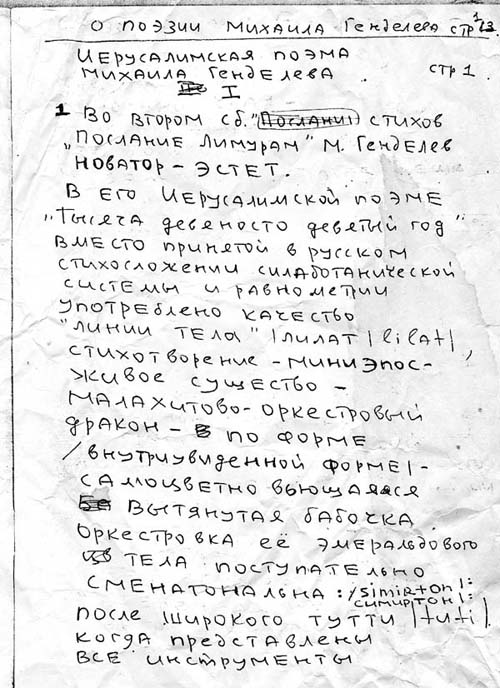 О ПОЭЗИИ МИХАИЛА ГЕНДЕЛЕВА стр 1/13
ИЕРУСАЛИМСКАЯ ПОЭМА
МИХАИЛА ГЕНДЕЛЕВА стр 1.
I
1 ВО ВТОРОМ СБ. "ПОСЛАНИЯ СТИХОВ
"ПОСЛАНИЕ ЛИМУРАМ" М. ГЕНДЕЛЕВ
НОВАТОР - ЭСТЕТ.
В ЕГО ИЕРУСАЛИМСКОЙ ПОЭМЕ
"ТЫСЯЧА ДЕВЕНОСТО ДЕВЯТЫЙ ГОД"
ВМЕСТО ПРИНЯТОЙ В РУССКОМ
СТИХОСЛОЖЕНИИ СИЛАБОТАНИЧЕСКОЙ
СИСТЕМЫ И РАВНОМЕТРИИ
УПОТРЕБЛЕНО КАЧЕСТВО
"ЛИНИИ ТЕЛА" |ЛИЛАТ| lilat|,
СТИХОТВОРЕНИЕ - МИНИЭПОС -
ЖИВОЕ СУЩЕСТВО -
МАЛАХИТОВО-ОРКЕСТРОВЫЙ
ДРАКОН - ПО ФОРМЕ
/ВНУТРИУВИДЕННОЙ ФОРМЕ| -
САМОЦВЕТНО ВЬЮЩАЯСЯ
ВЫТЯНУТАЯ БАБОЧКА
ОРКЕСТРОВКА ЕЁ ЭМЕРАЛЬДОВОГО
ТЕЛА ПОСТУПАТЕЛЬНО
СМЕНАТОНАЛЬНА: /simirton|:
СИМИРТОН|:
ПОСЛЕ ШИРОКОГО ТУТТИ |tuti|.
КОГДА ПРЕДСТАВЛЕНЫ
ВСЕ ИНСТРУМЕНТЫ